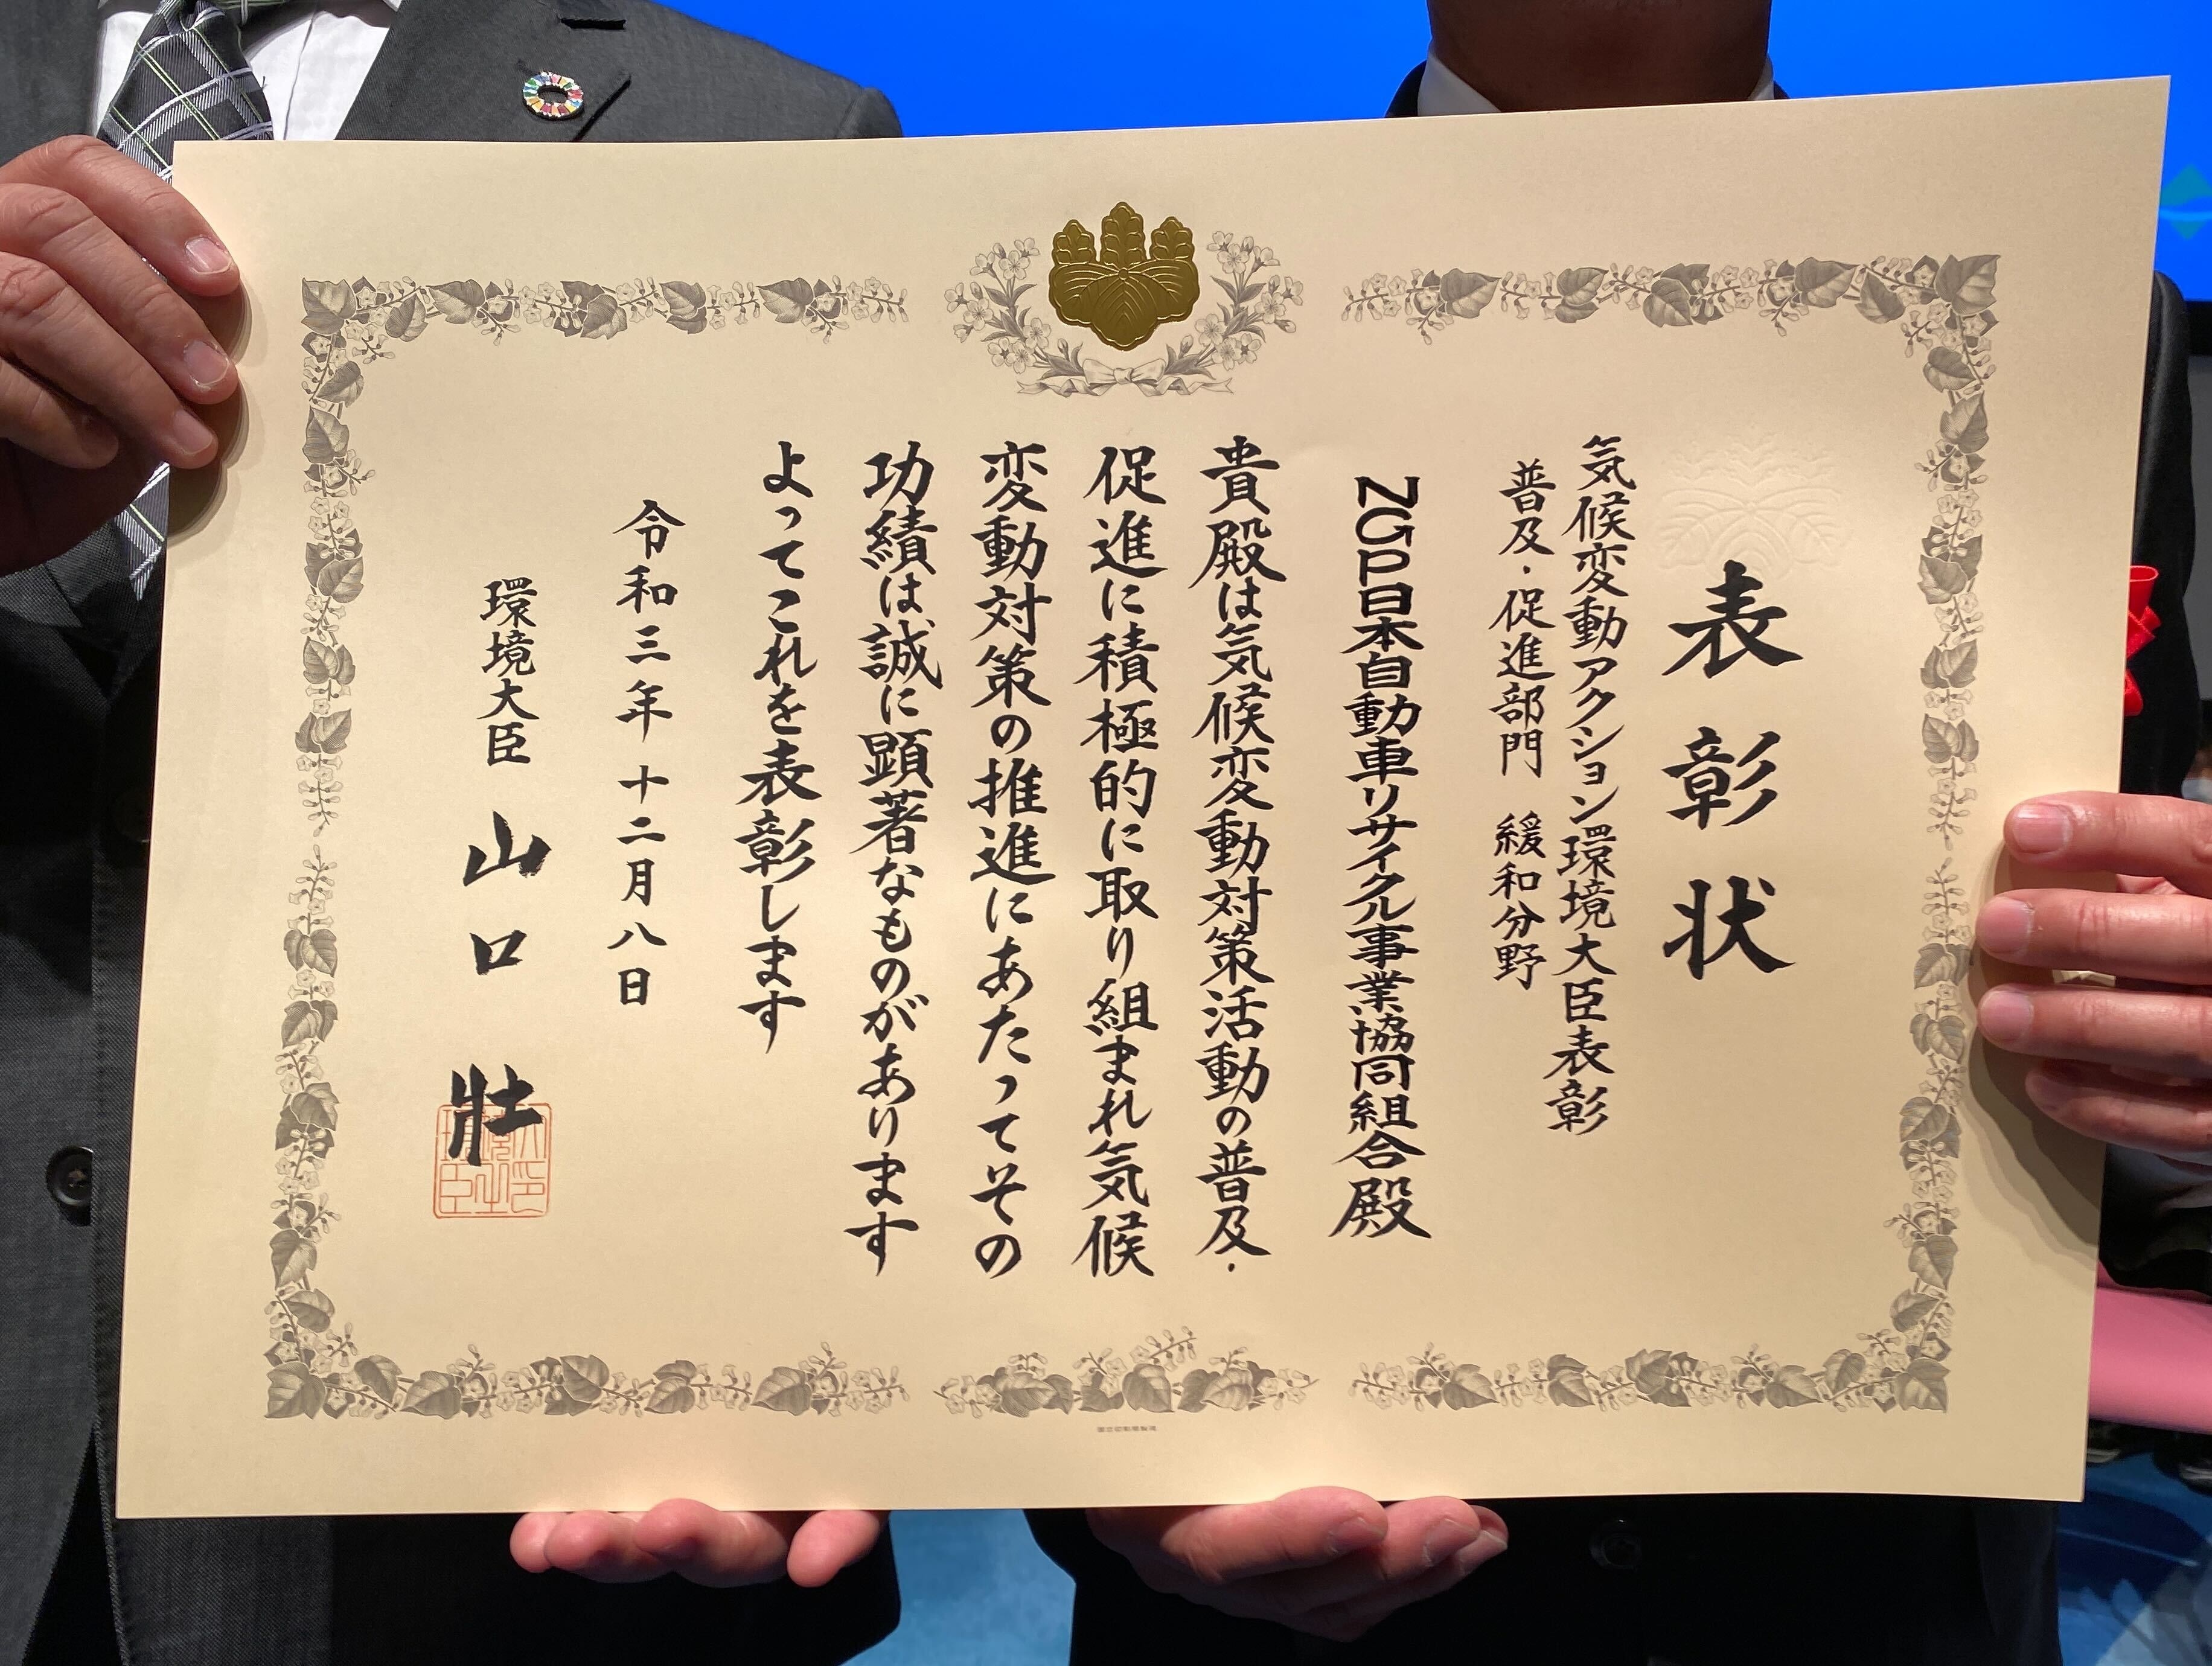 表彰状
気候変動アクション環境大臣表彰
普及・促進部門 緩和分野
NGP日本自動車リサイクル事業協同組合殿
貴殿は気候変動対策活動の普及・
促進に積極的に取り組まれ気候
変動対策の推進にあたってその
功績は誠に顕著なものがあります
よってこれを表彰します
令和三年十二月八日
環境大臣 山口壯